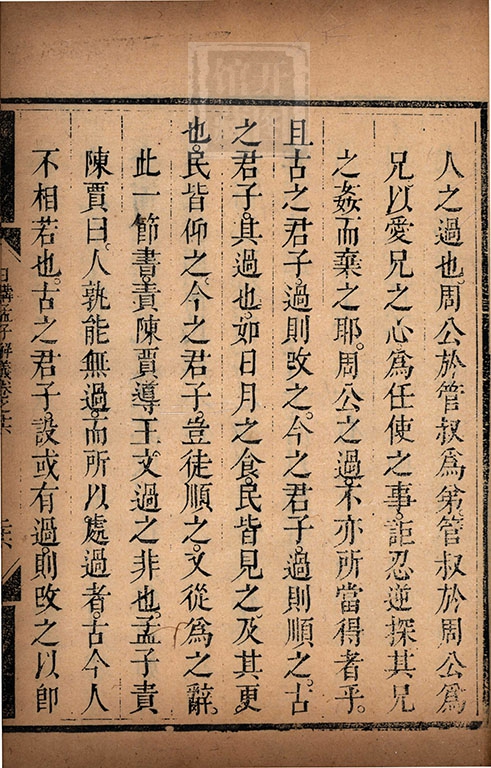 人之過也。周公於管叔為弟。管叔於周公為
兄。以愛兄之心。為任使之事。詎忍逆探其兄
之姦而棄之耶。周公之過。不亦所當得者乎。
且古之君子。過則改之。今之君子。過則順之。古
之君子。其過也。如日月之食。民皆見之。及其更
也。民皆仰之。今之君子。豈徒順之。又從為之辭。
此一節書。責陳賈導王文過之非也。孟子責
陳賈曰。人孰能無過。而所以處過者。古今人
不相若也。古之君子。設或有過。則改之以即
日講孟子解義卷之